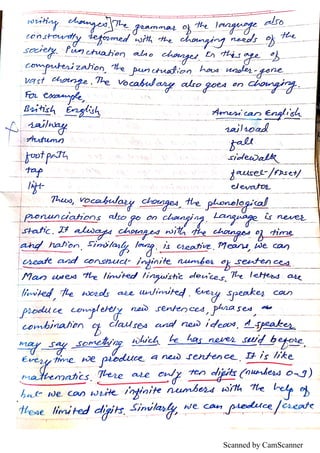 writing changes. The grammar of the language also
constantly reformed with the changing needs of the
society. Punctuation also changed. In this age of
computerization, the punctuation have under-gone
vast change. The vocabulary also goes on changing.
For example,
British English American English
railway railroad
Autumn fall
footpath sidewalk
tap faucet/
lift elevator
Thus, vocabulary changes, the phonological
pronunciations also go on changing. Language is never
static. It always changes with the changes of time
and nation. Similarly, lang. is creative. Means, we can
create and construct infinite number of sentences
Man uses the limited linguistic devices. The letters are
limited, the words are unlimited. Every speaker can
produce completely new sentences, phrases,
combination of clauses and new ideas. A speaker
may say something which he has never said before.
Every time we produce a new sentence. It is like
mathematics. There are only ten digits (numbers 0-9)
but we can write infinite numbers with the help of
these limited digits. Similarly, we can produce/create
Scanned by CamScanner